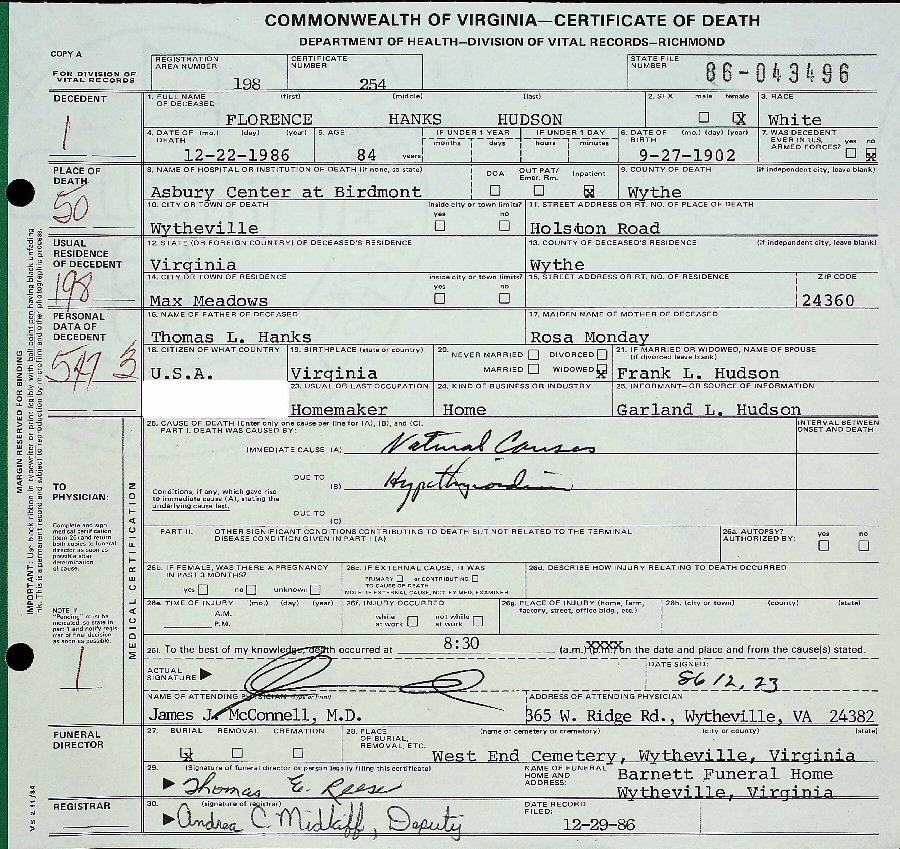 COMMONWEALTH OF VIRGINIA—CERTIFICATE OF DEATH
DEPARTMENT OF HEALTH—DIVISION OF VITAL RECORDS—RICHMOND
COPY A
FOR DIVISION OF VITAL RECORDS
REGISTRATION AREA NUMBER 198
CERTIFICATE NUMBER 254
STATE FILE NUMBER 86-043496
DECEDENT
1
1. FULL NAME OF DECEASED (first) (middle) (last)
FLORENCE HANKS HUDSON
2. SEX male female X
3. RACE White
4. DATE OF DEATH (mo.) (day) (year) 12-22-1986
5. AGE 84 years
IF UNDER 1 YEAR months days
IF UNDER 1 DAY hours minutes
6. DATE OF BIRTH (mo.) (day) (year) 9-27-1902
7. WAS DECEDENT EVER IN U.S. ARMED FORCES? yes no X
PLACE OF DEATH
50
8. NAME OF HOSPITAL OR INSTITUTION OF DEATH (if none, so state)
Asbury Center at Birdmont
DOA OUT PAT/ Emer. Rm. Inpatient X
9. COUNTY OF DEATH (if independent city, leave blank)
Wythe
10. CITY OR TOWN OF DEATH inside city or town limits? yes no
Wytheville
11. STREET ADDRESS OR RT. NO. OF PLACE OF DEATH
Holston Road
USUAL RESIDENCE OF DECEDENT
198
12. STATE (OR FOREIGN COUNTRY) OF DECEASED'S RESIDENCE
Virginia
13. COUNTY OF DECEASED'S RESIDENCE (if independent city, leave blank)
Wythe
14. CITY OR TOWN OF RESIDENCE inside city or town limits? yes no
Max Meadows
15. STREET ADDRESS OR RT. NO. OF RESIDENCE ZIP CODE
24360
PERSONAL DATA OF DECEDENT
547 3
16. NAME OF FATHER OF DECEASED
Thomas L. Hanks
17. MAIDEN NAME OF MOTHER OF DECEASED
Rosa Monday
18. CITIZEN OF WHAT COUNTRY
U.S.A.
19. BIRTHPLACE (state or country)
Virginia
20. NEVER MARRIED DIVORCED
MARRIED WIDOWED X
21. IF MARRIED OR WIDOWED, NAME OF SPOUSE (if divorced leave blank)
Frank L. Hudson
23. USUAL OR LAST OCCUPATION
Homemaker
24. KIND OF BUSINESS OR INDUSTRY
Home
25. INFORMANT—OR SOURCE OF INFORMATION
Garland L. Hudson
MARGIN RESERVED FOR BINDING
MEDICAL CERTIFICATION
TO PHYSICIAN:
Complete and sign medical certification (item 26) and return both copies to funeral director as soon as possible after determination of cause.
NOTE: If "Pending" must be indicated, so state in part 1 and notify registrar of final decision as soon as possible.
1
26. CAUSE OF DEATH (Enter only one cause per line for (A), (B), and (C).
PART I. DEATH WAS CAUSED BY:
INTERVAL BETWEEN ONSET AND DEATH
IMMEDIATE CAUSE (A) Natural Causes
DUE TO (B) Hypothyroidism
Conditions, if any, which gave rise to immediate cause (A), stating the underlying cause last.
DUE TO (C)
PART II. OTHER SIGNIFICANT CONDITIONS CONTRIBUTING TO DEATH BUT NOT RELATED TO THE TERMINAL DISEASE CONDITION GIVEN IN PART I (A)
26a. AUTOPSY? AUTHORIZED BY: yes no
26b. IF FEMALE, WAS THERE A PREGNANCY IN PAST 3 MONTHS?
yes no unknown
26c. IF EXTERNAL CAUSE, IT WAS
PRIMARY or CONTRIBUTING
TO CAUSE OF DEATH
NOTE: IF EXTERNAL CAUSE, NOTIFY MED. EXAMINER
26d. DESCRIBE HOW INJURY RELATING TO DEATH OCCURRED
26e. TIME OF INJURY (mo.) (day) (year)
A.M.
P.M.
26f. INJURY OCCURRED
while at work not while at work
26g. PLACE OF INJURY (home, farm, factory, street, office bldg., etc.)
26h. (city or town) (county) (state)
26i. To the best of my knowledge, death occurred at 8:30 (a.m.) (p.m.) xxxx on the date and place and from the cause(s) stated.
ACTUAL SIGNATURE
DATE SIGNED: 86 12, 23
NAME OF ATTENDING PHYSICIAN (type or print)
James J. McConnell, M.D.
ADDRESS OF ATTENDING PHYSICIAN
365 W. Ridge Rd., Wytheville, VA 24382
FUNERAL DIRECTOR
27. BURIAL X REMOVAL CREMATION
28. PLACE OF BURIAL, REMOVAL, ETC. (name of cemetery or crematory) (city or county) (state)
West End Cemetery, Wytheville, Virginia
29. (Signature of funeral director or person legally filing this certificate)
Thomas E. Reese
NAME OF FUNERAL HOME AND ADDRESS:
Barnett Funeral Home
Wytheville, Virginia
REGISTRAR
30. (signature of registrar)
Andrea C. Midkiff, Deputy
DATE RECORD FILED: 12-29-86
VS 2 11/84